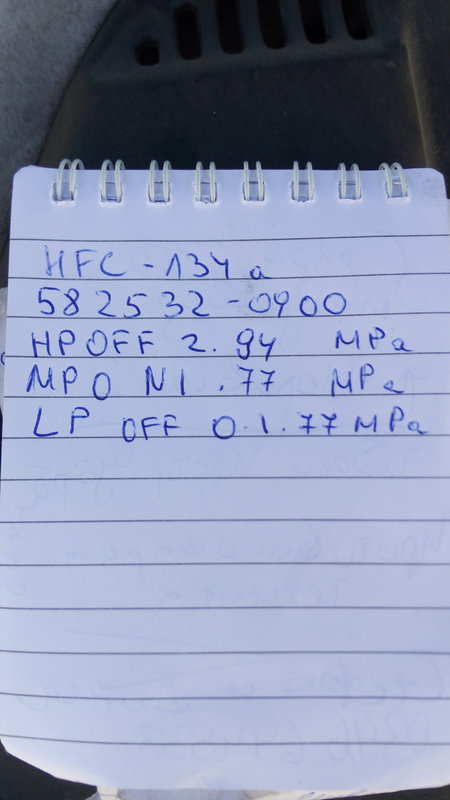 HFC-134a
582532-0900
HPOFF 2.94 MPa
MPO N1.77 MPa
LP OFF 0.1.77 MPa